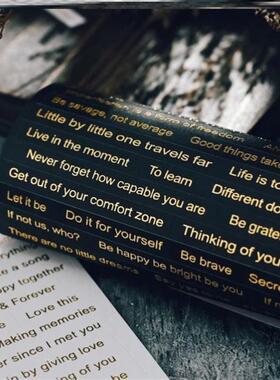 form of freedom
Be savage, not average Good things take
Little by little one travels far Life is
Live in the moment To learn Different
Never forget how capable you are Be grate
Get out of your comfort zone Thinking of you
Let it be Do it for yourself Be brave Secre
If not us, who? Be happy be bright be you
There are no little dreams Say yes
happy together
& Forever
Love this
Making memories
er since I met you
in by giving love